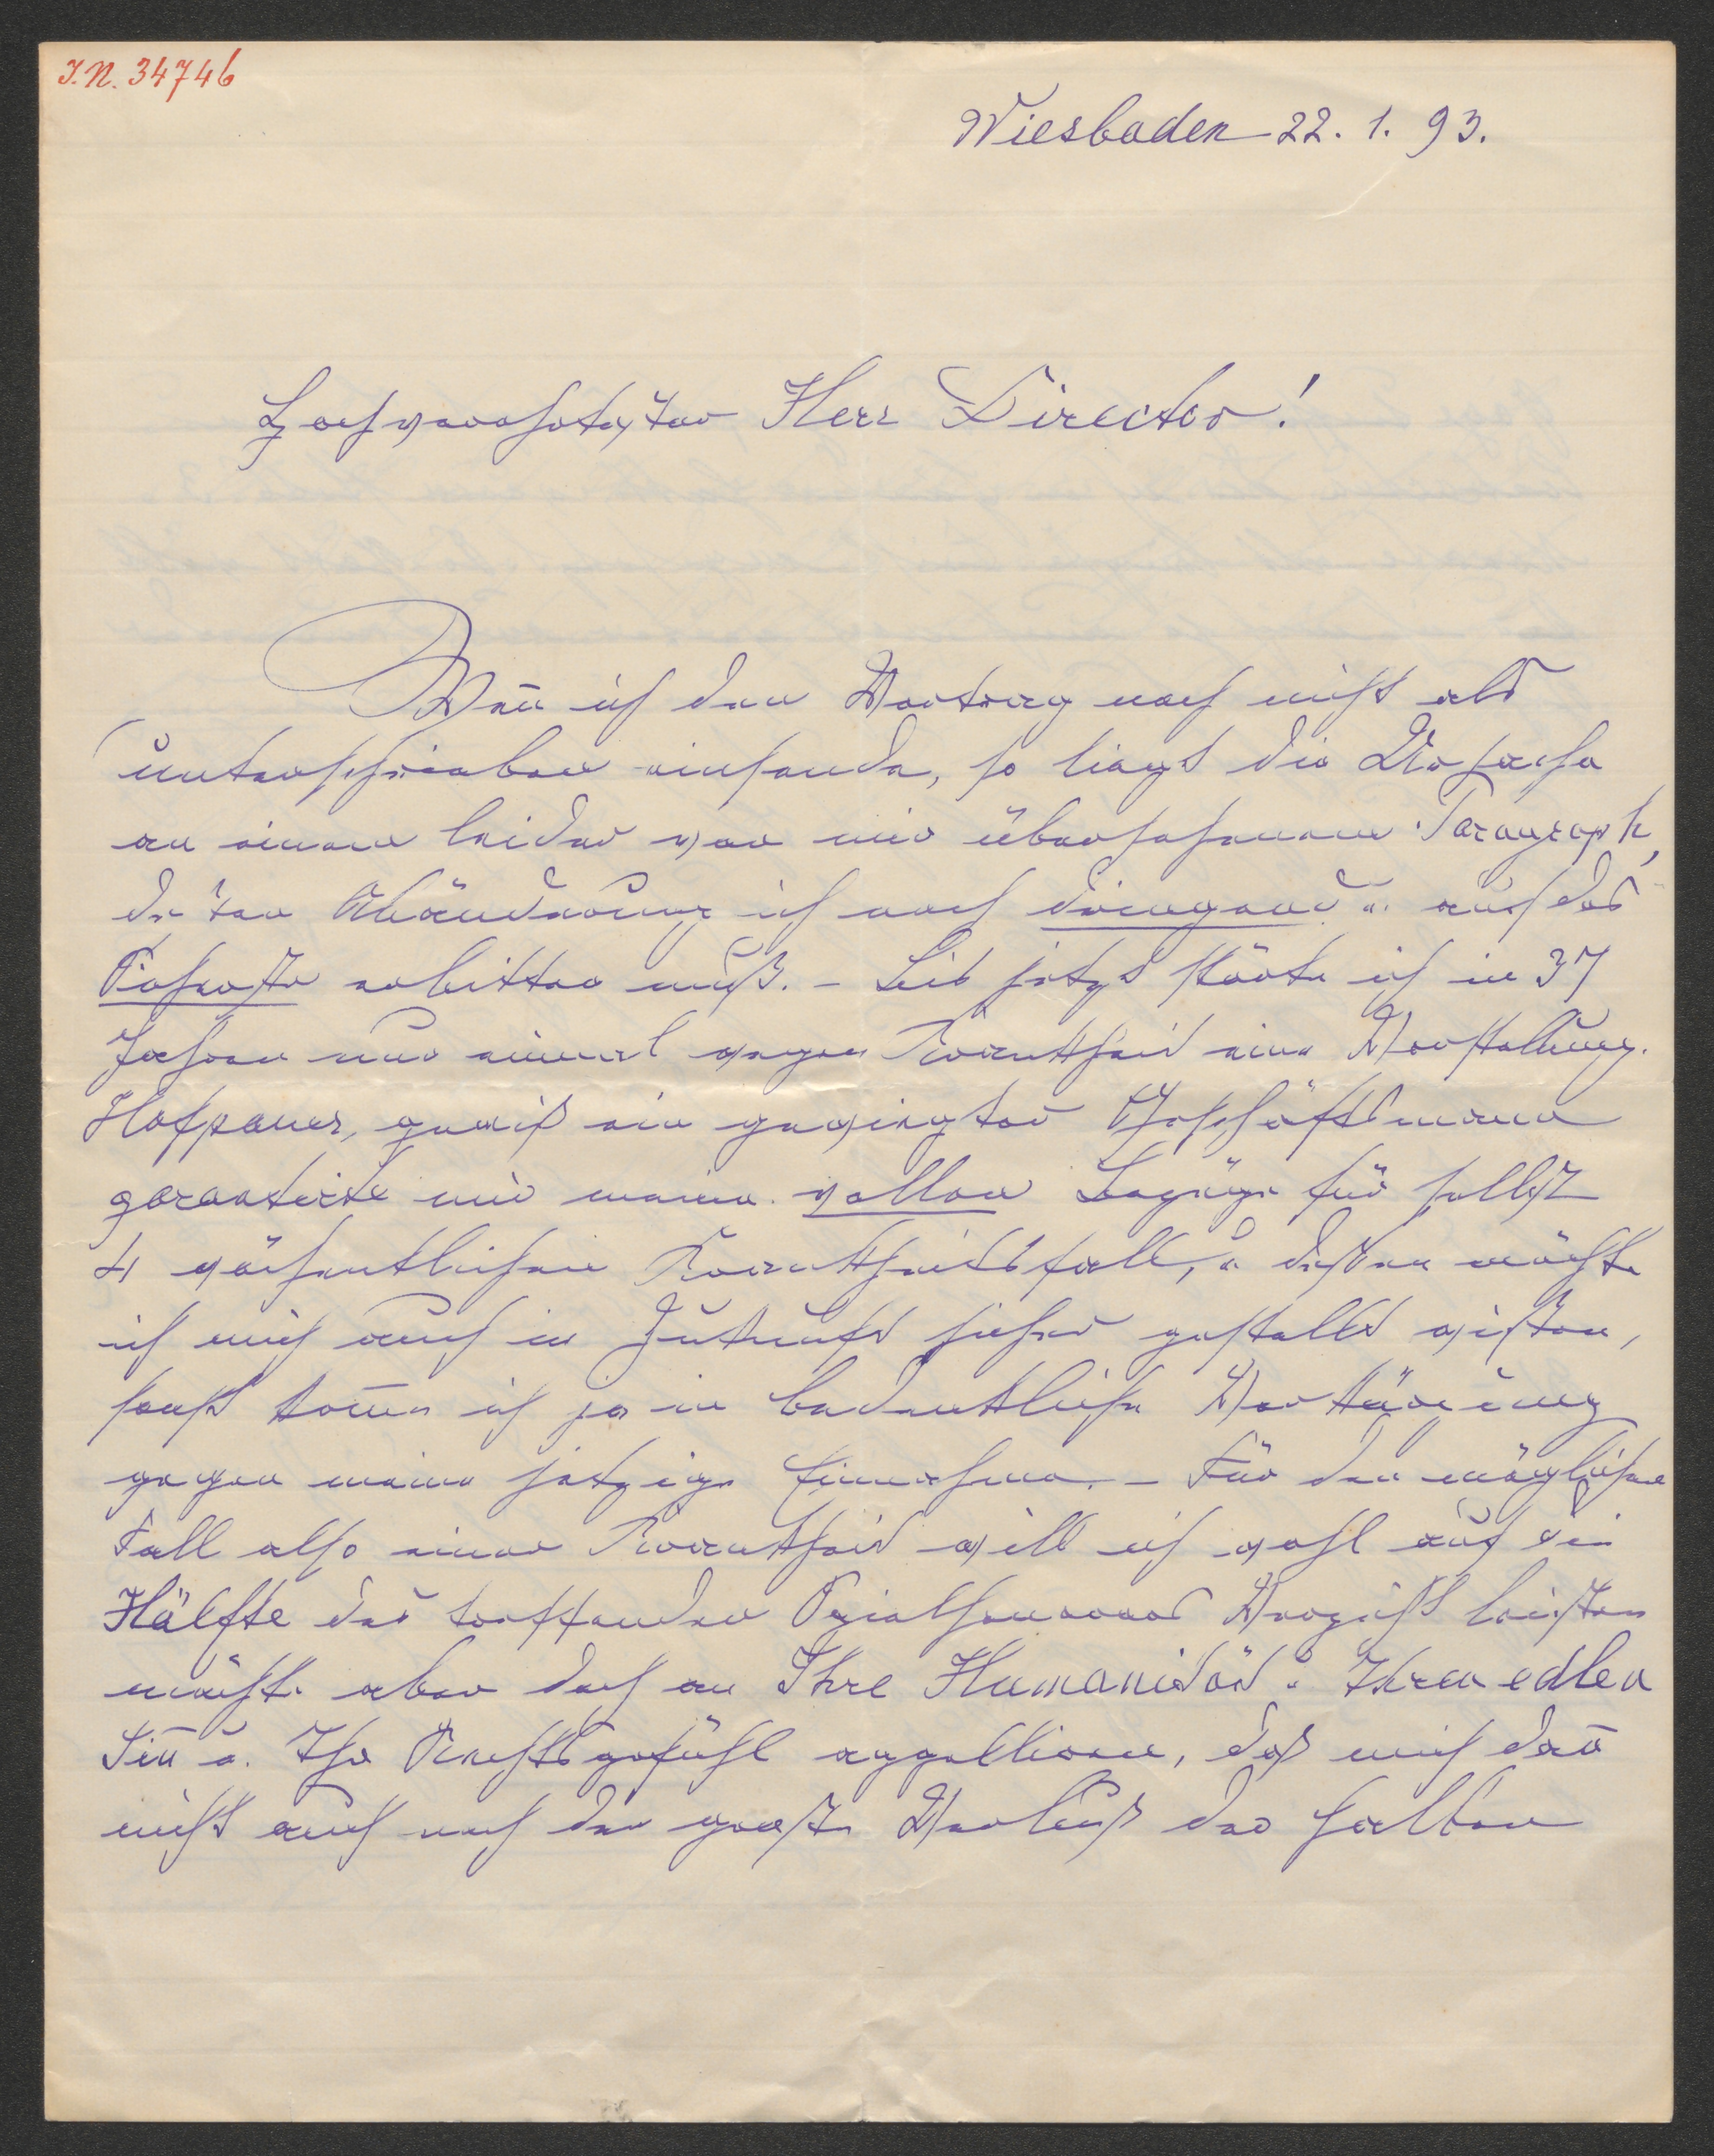 I.N. 34746
Wiesbaden 22. 1. 93.
Hochverehrtester Herr Director!
Weñ ich den Vertrag noch nicht als
unterschrieben einsende, so liegt die Ursache
an einem leider von mir übersehenem Paragraph,
deßen Abänderung ich noch dringend u. auf das
Eherste erbitten muß. – Bis jetzt störte ich in 37
Jahren nur einmal wegen Krankheit eine Vorstellung.
Hofpauer, gewiß ein gewiegter Geschäftsmann
garantirte mir meine vollen Bezüge für selbst
4 wöchentlichen Krankheitsfall, u. deßen möchte
ich mich auch in Zukunft sicher gestellt wißen,
sonst kom̄e ich ja in bedenkliche Verkürzung
gegen meine jetzige Einnahme. – Für den möglichen
Fall also einer Krankheit will ich wohl auf die
Hälfte des treffenden Spielhonorars Verzicht leisten
möchte aber doch an Ihre Humanität u. Ihren edlen
Siñ u. Ihr Rechtsgefühl appelliren, daß mich dañ
nicht auch noch der Verlust der halben